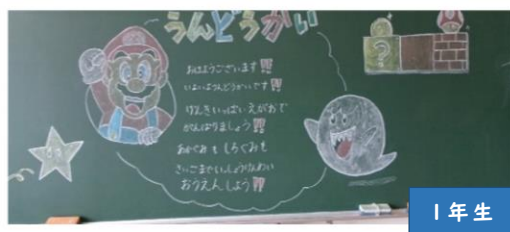 うんどうかい
おはようございます!!
いよいようんどうかいです!!
げんきいっぱいえがおで
がんばりましょう!!
あかぐみも しろぐみも
さいごまでいっしょうけんめい
おうえんしよう!!
?
1年生